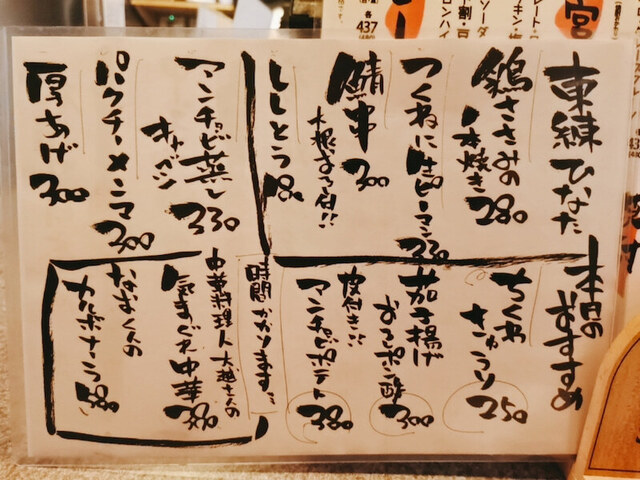 東練ひなた
本日の
おすすめ
鶏ささみの
一本焼き 280
つくねに生ピーマン 330
鯖串 300
大根おろし付!!
ししとう 180
アンチョビ蒸し
キャベツ 330
パクチーメンマ 300
厚あげ 300
ちくわ
きゅうり 250
茄子揚げ
おろしポン酢 300
皮付き!!
アンチョビポテト 380
時間かかります…
中華料理人大越さんの
気まぐれ中華 380
なおくんの
カルボナーラ 580
437